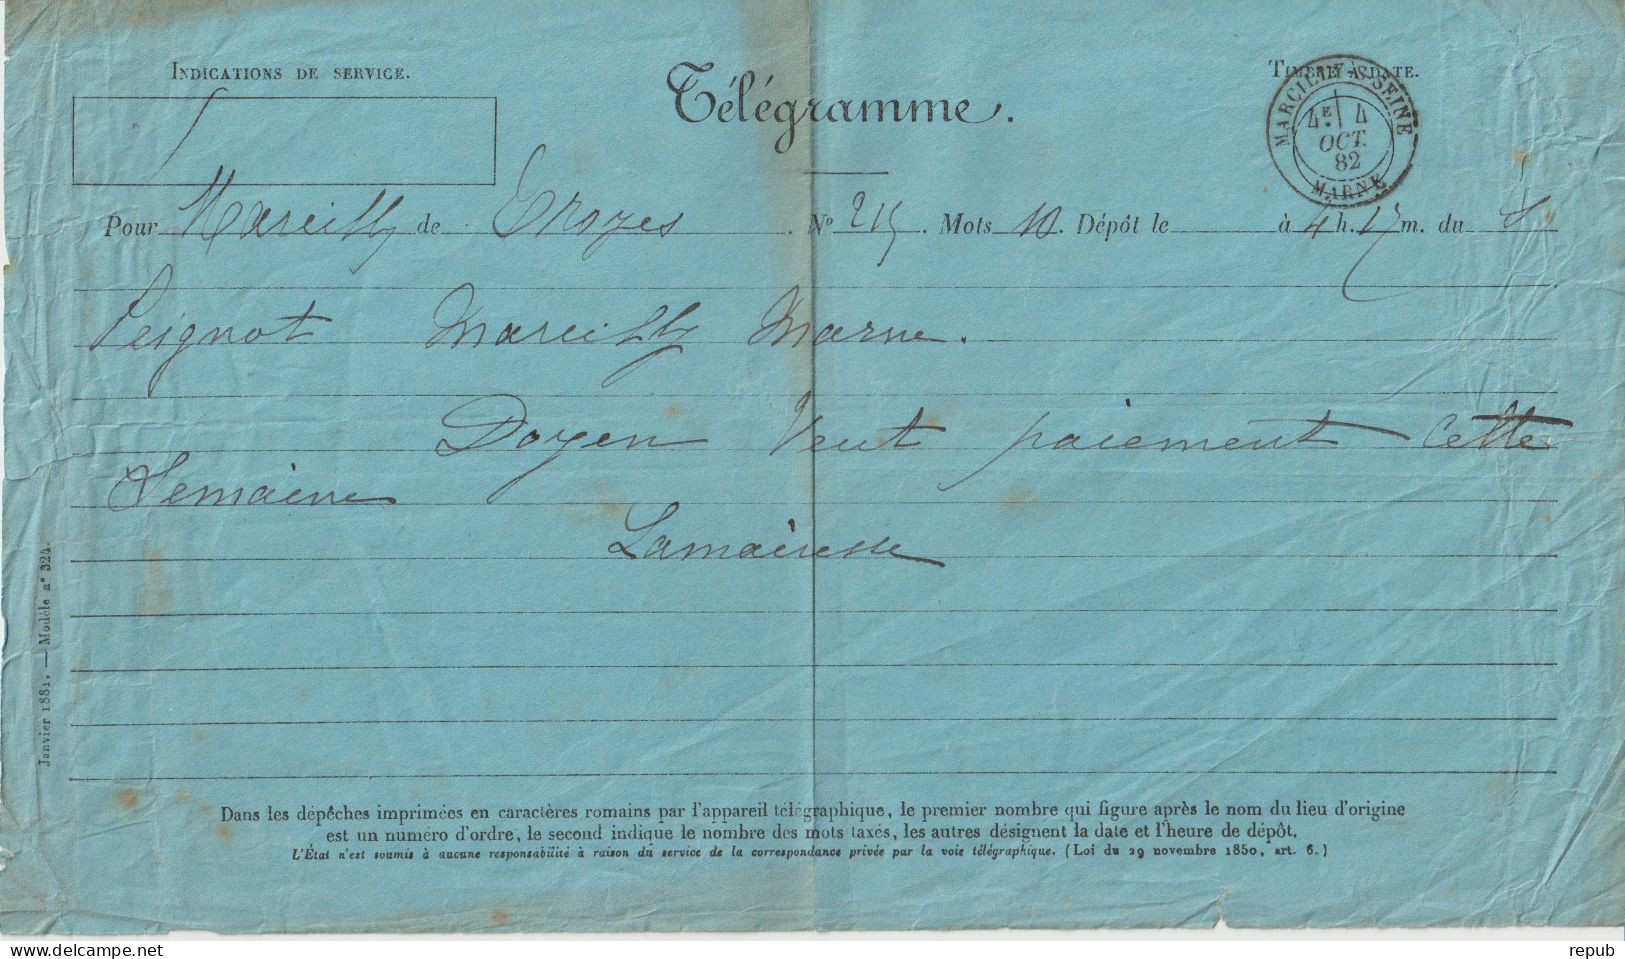 INDICATIONS DE SERVICE.
Télégramme.
TIMBRE À DATE.
MARCILLY-S-SEINE
4E 4
OCT.
82
MARNE
Pour Marcilly de Troyes. N° 215. Mots 10. Dépôt le à 4 h. m. du
Peignot Marcilly Marne.
Doyen Veut paiement cette
Semaine
Lamairesse
Janvier 1881. — Modèle n° 324.
Dans les dépêches imprimées en caractères romains par l'appareil télégraphique, le premier nombre qui figure après le nom du lieu d'origine
est un numéro d'ordre, le second indique le nombre des mots taxés, les autres désignent la date et l'heure de dépôt.
L'État n'est soumis à aucune responsabilité à raison du service de la correspondance privée par la voie télégraphique. (Loi du 29 novembre 1850, art. 6.)
www.delcampe.net
repub